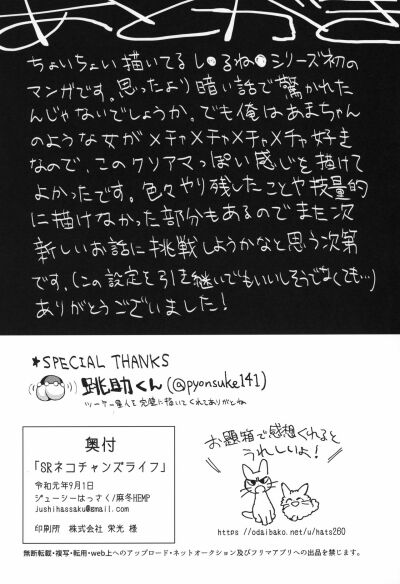 あとがき
ちょいちょい描いてるし●るね●シリーズ初の
マンガです。思ったより暗い話で驚かれた
んじゃないでしょうか。でも俺はあまちゃん
のような女がメチャメチャメチャメチャ好き
なので、このクリアマっぽい感じを描けて
よかったです。色々やり残したことや技量的
に描けなかった部分もあるのでまた次
新しいお話に挑戦しようかなと思う次第
です。(この設定を引き継いでもいいしそうでなくても…)
ありがとうございました!
*SPECIAL THANKS
跳助くん(@pyonsuke141)
ツーケー星人を完璧に描いてくれてありがとね
奥付
「SRネコチャンズライフ」
令和元年9月1日
ジューシーはっさく/麻冬HEMP
jushihassaku@gmail.com
印刷所 株式会社 栄光 様
お題箱で感想くれると
うれしいよ!
https://odaibako.net/u/hats260
無断転載・複写・転用・web上へのアップロード・ネットオークション及びフリマアプリへの出品を禁じます。